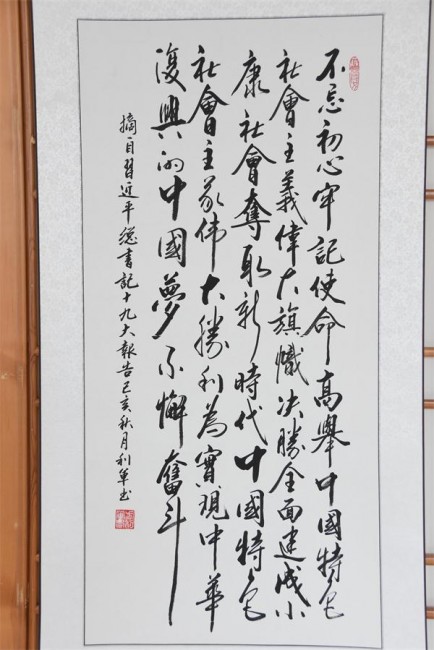 不忘初心牢記使命高舉中國特色
社會主義偉大旗幟决勝全面建成小
康社會奪取新時代中國特色
社會主义伟大勝利為實現中華
復興的中國夢不懈奮斗
摘自習近平總書記十九大報告己亥秋月利軍书